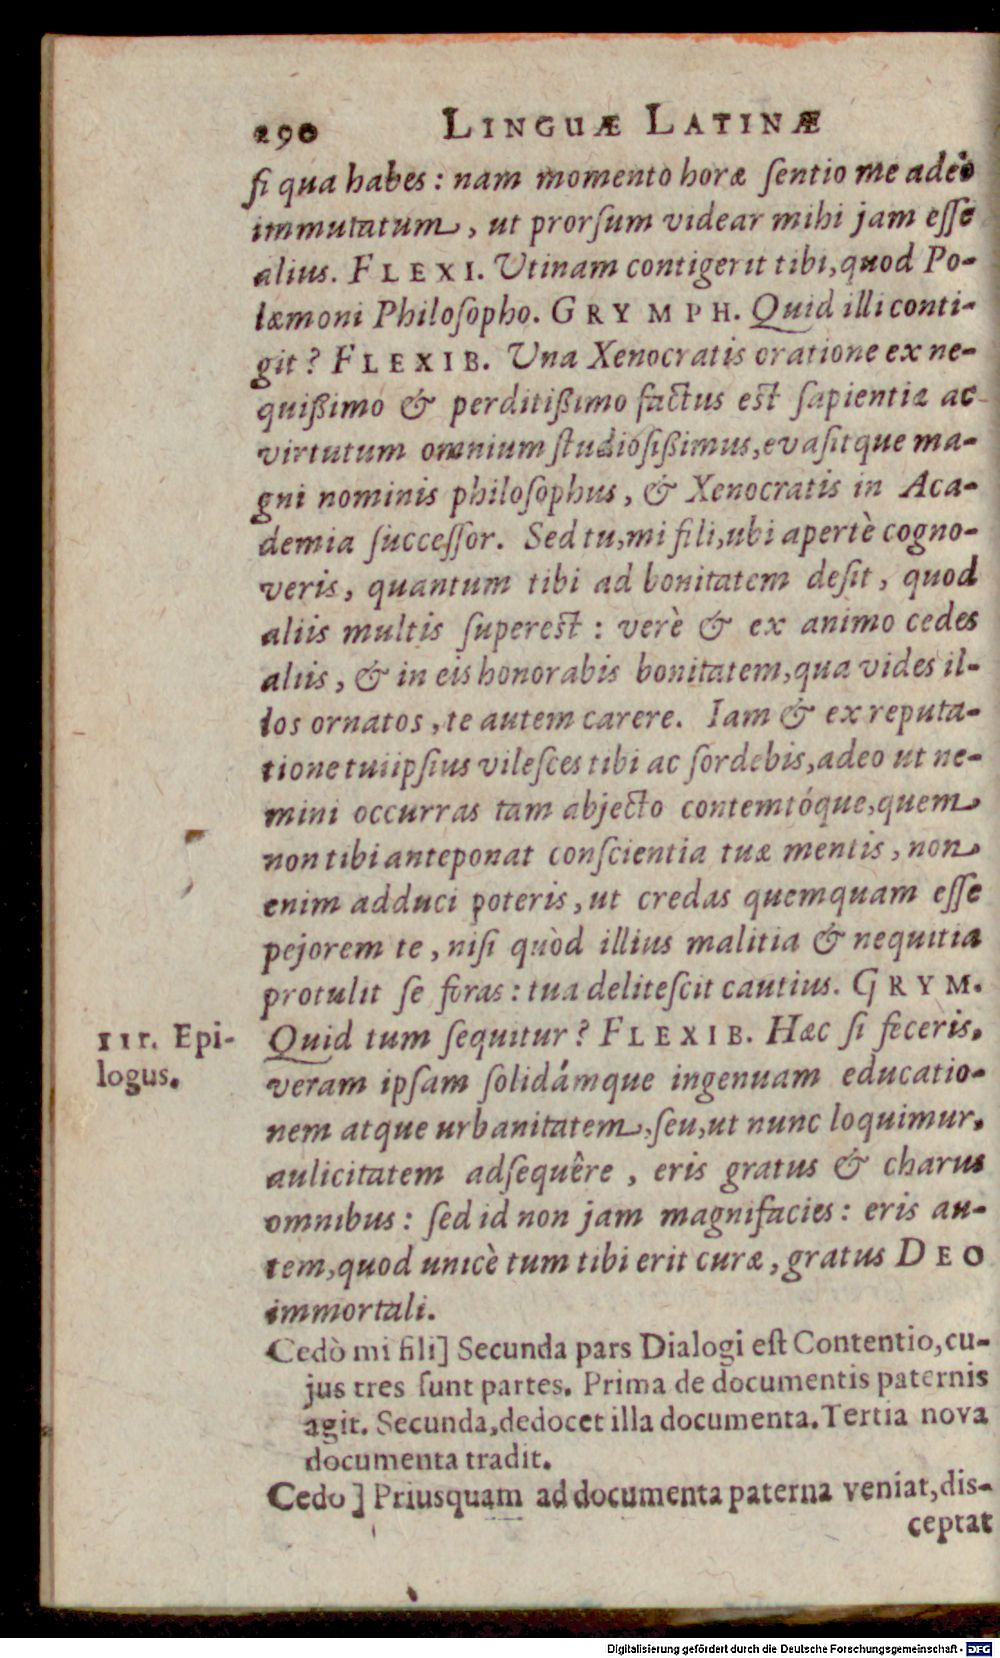 290 LINGUÆ LATINÆ
ſi qua habes : nam momento horæ ſentio me adeò
immutatum, ut prorſum videar mihi jam eſſe
alius. FLEXI. Utinam contigerit tibi, quod Po-
læmoni Philoſopho. GRYMPH. Quid illi conti-
git? FLEXIB. Una Xenocratis oratione ex ne-
quißimo & perditißimo factus est ſapientiæ ac
virtutum omnium ſtudioſißimus, evaſitque ma-
gni nominis philoſophus, & Xenocratis in Aca-
demia ſucceſſor. Sed tu, mi fili, ubi apertè cogno-
veris, quantum tibi ad bonitatem deſit, quod
aliis multis ſuperest : verè & ex animo cedes
aliis, & in eis honorabis bonitatem, qua vides il-
los ornatos, te autem carere. Iam & ex reputa-
tione tui ipſius vileſces tibi ac ſordebis, adeo ut ne-
mini occurras tam abjecto contemtóque, quem
non tibi anteponat conſcientia tuæ mentis, non
enim adduci poteris, ut credas quemquam eſſe
pejorem te, niſi quòd illius malitia & nequitia
protulit ſe foras : tua deliteſcit cautius. GRYM.
III. Epi-
logus.
Quid tum ſequitur? FLEXIB. Hæc ſi feceris,
veram ipſam ſolidámque ingenuam educatio-
nem atque urbanitatem, ſeu, ut nunc loquimur,
aulicitatem adſequêre, eris gratus & charus
omnibus : ſed id non jam magnifacies : eris au-
tem, quod unicè tum tibi erit curæ, gratus DEO
immortali.
Cedò mi fili] Secunda pars Dialogi eſt Contentio, cu-
jus tres ſunt partes. Prima de documentis paternis
agit. Secunda, dedocet illa documenta. Tertia nova
documenta tradit.
Cedo] Priusquam ad documenta paterna veniat, dis-
ceptat
Digitalisierung gefördert durch die Deutsche Forschungsgemeinschaft - DFG